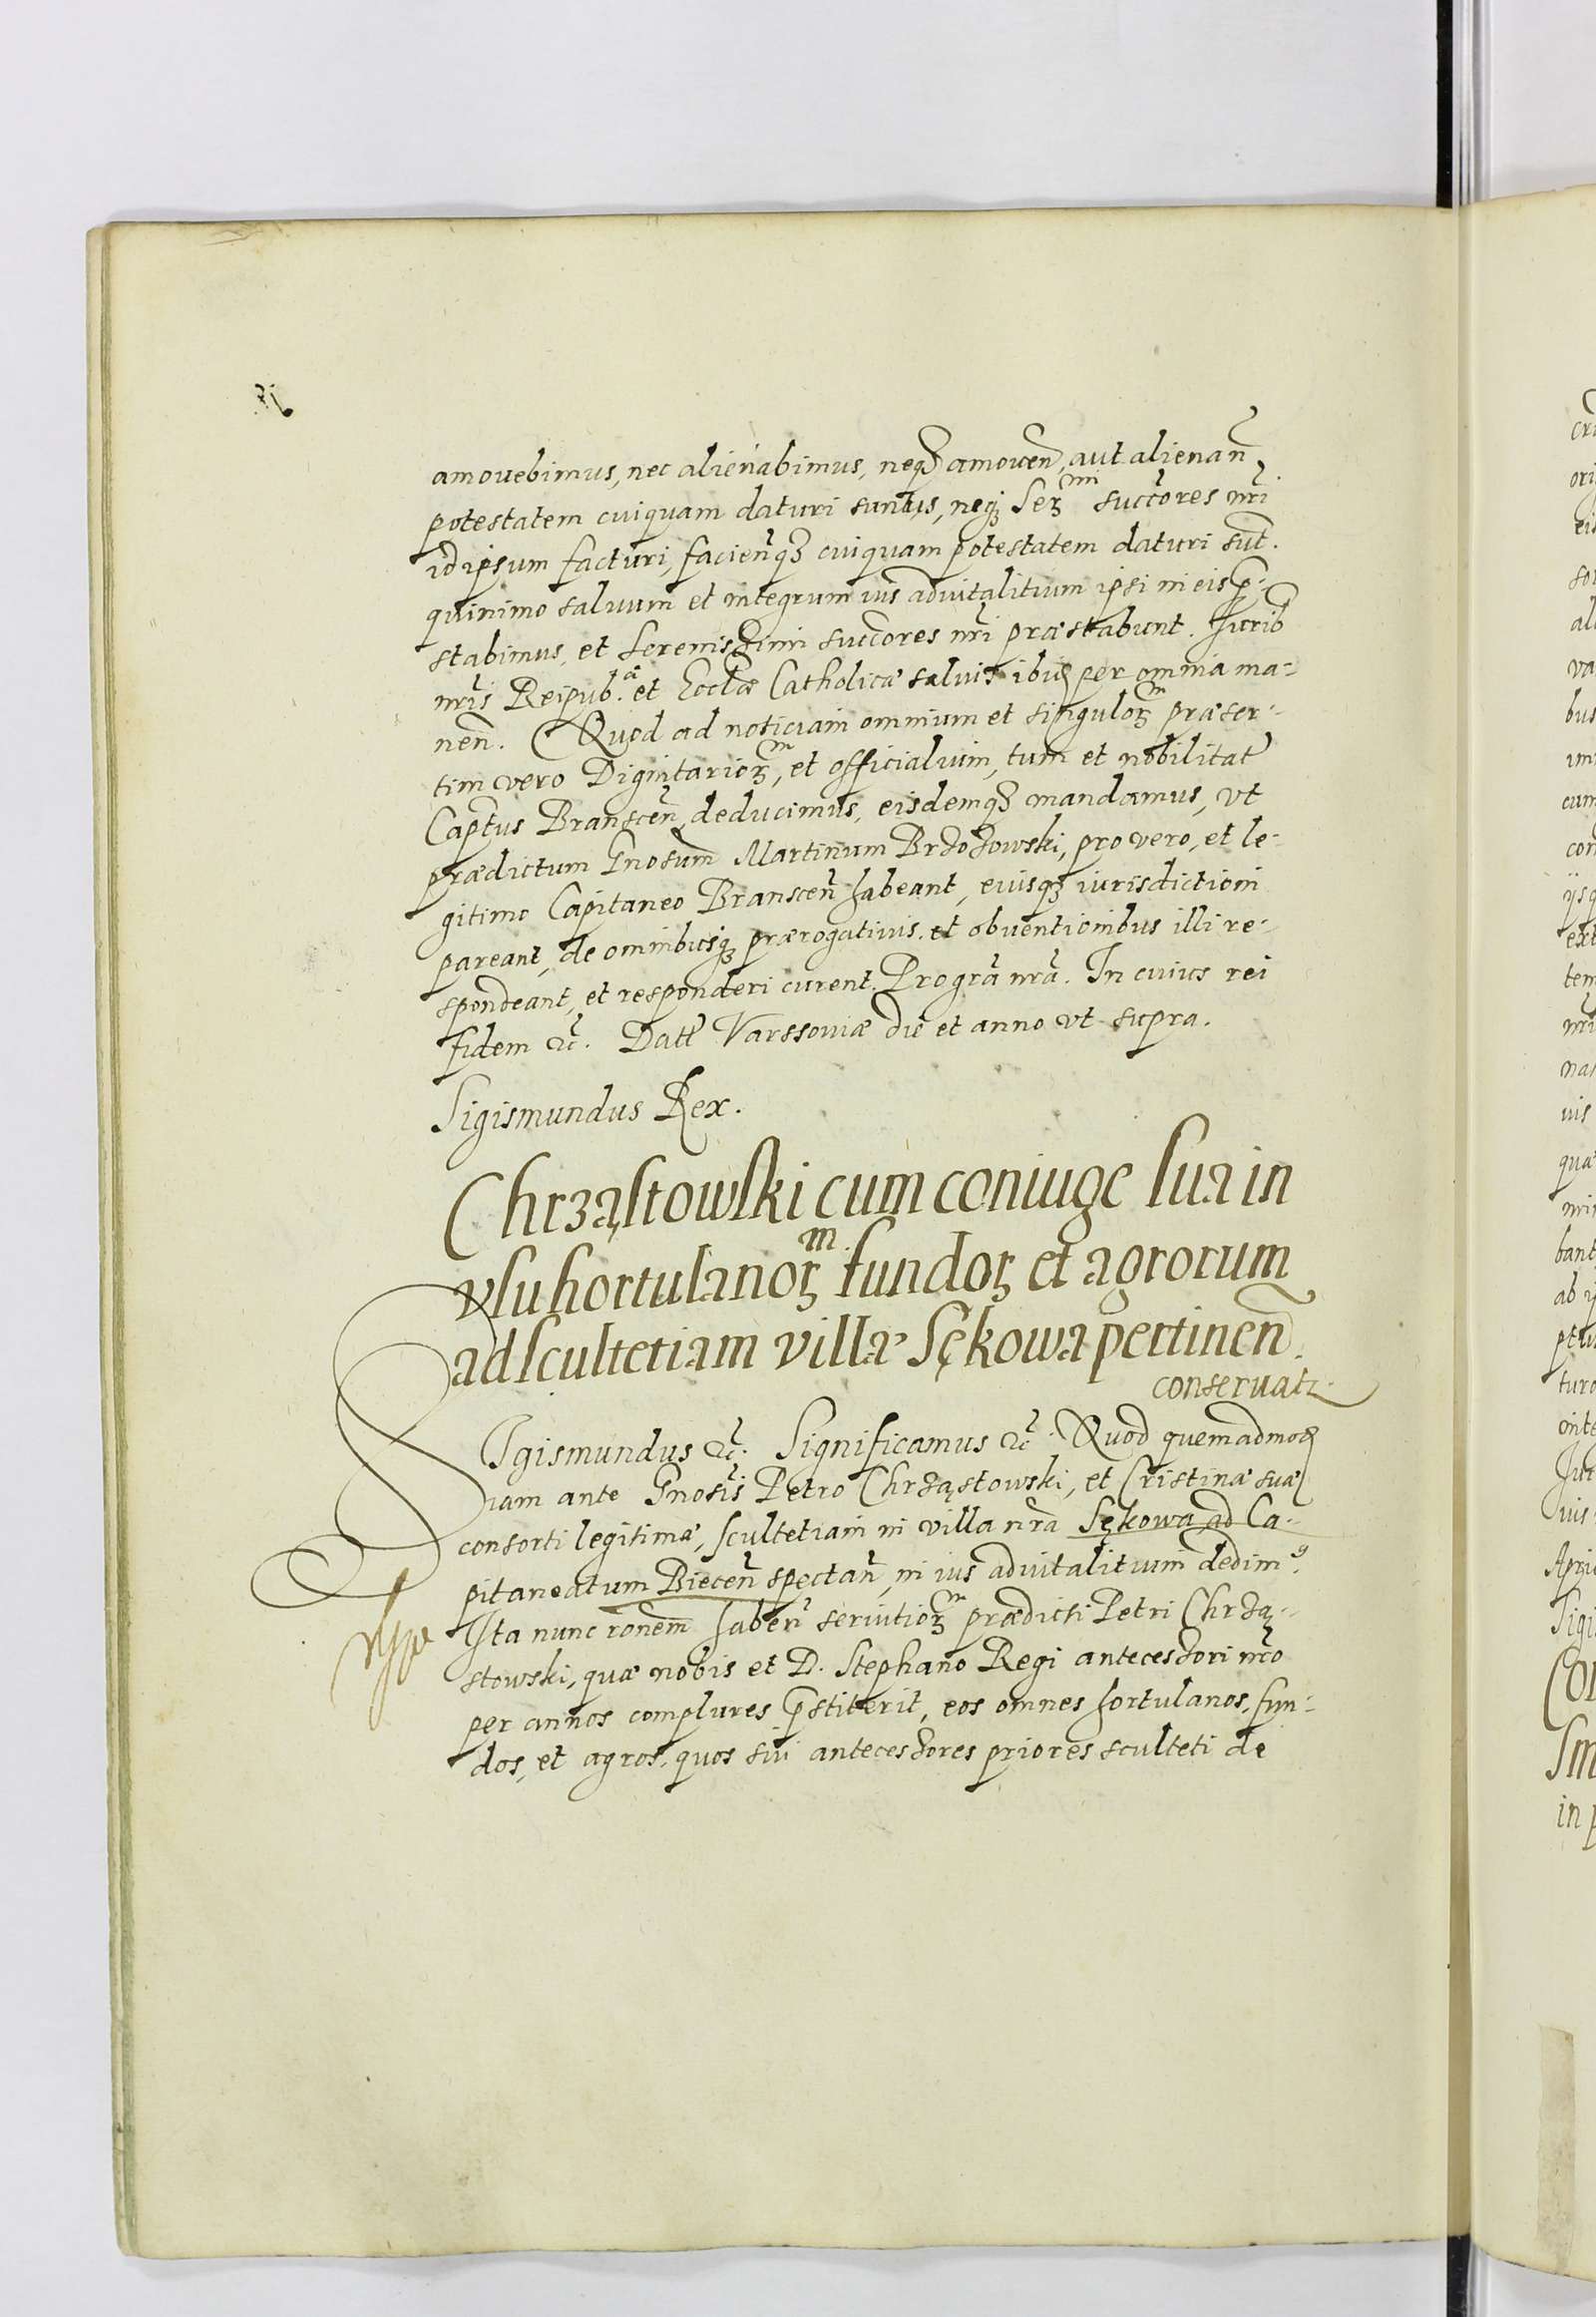 amouebimus, nec alienabimus, neqȝ amouen̄, aut alienan̄
potestatem cuiquam daturi sumus, neqȝ Serᵐⁱ succ̄ores nr̄i
id ipsum facturi, facien̄qȝ cuiquam potestatem daturi sūt.
quinimo saluum et integrum ius aduitalitium ipsi in eis p̄-
stabimus, et Serenissimi succ̄ores nr̄i præstabunt. Iurib
nr̄is Reipub.ᶜᵃ et Eccl̄æ Catholicæ saluis ibidē per omnia ma-
nen̄. Quod ad noticiam omnium et singulorꝫᵐ præser-
tim vero Dignitariorꝫᵐ, et officialium, tum et nobilitat̄
Capt̄us Branscen̄ deducimus, eisdemqȝ mandamus, vt
prædictum Gnosum̄ Martinum Brzozowski, pro vero, et le-
gitimo Capitaneo Branscen̄ habeant, eiusqȝ iurisdictioni
pareant, de omnibusqȝ prærogatiuis et obuentionibus illi re-
spondeant, et responderi curent. Pro gr̄a nr̄a. In cuius rei
fidem &c̄. Datt̄ Varssouiæ die et anno vt supra.
Sigismundus Rex.
Chrząstowski cum coniuge sua in
vsu hortulanorꝫᵐ fundorꝫ et agrorum
ad scultetiam villæ Sękowa pertinen̄.
conseruatr.
SIgismundus &c̄. Significamus &c̄. Quod quemadmod̄
iam ante Gnosis̄ Petro Chrząstowski, et Cristinæ suæ
consorti legitimæ, scultetiam in villa nr̄a Sękowa ad Ca-
pitaneatum Biecen̄ spectan̄, in ius aduitalitium dedimꝰ.
Ita nunc ronem̄ haben̄ seruitiorꝫᵐ prædicti Petri Chrzą-
stowski, quæ nobis et D. Stephano Regi antecessori nr̄o
per annos complures p̄stiterit, eos omnes hortulanos, fun-
dos, et agros, quos sui antecessores priores sculteti de